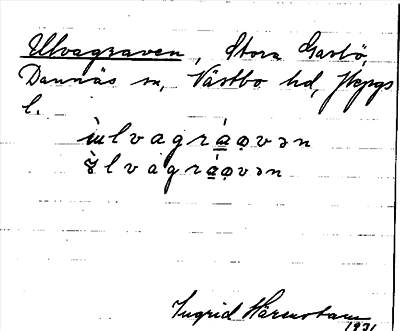 Ulvagraven, Stora Gastö,
Dannäs sn, Västbo hd, Jkpgs
l.
lvagráǫvən
lvagráǫvən
Ingrid Härenstam
1931